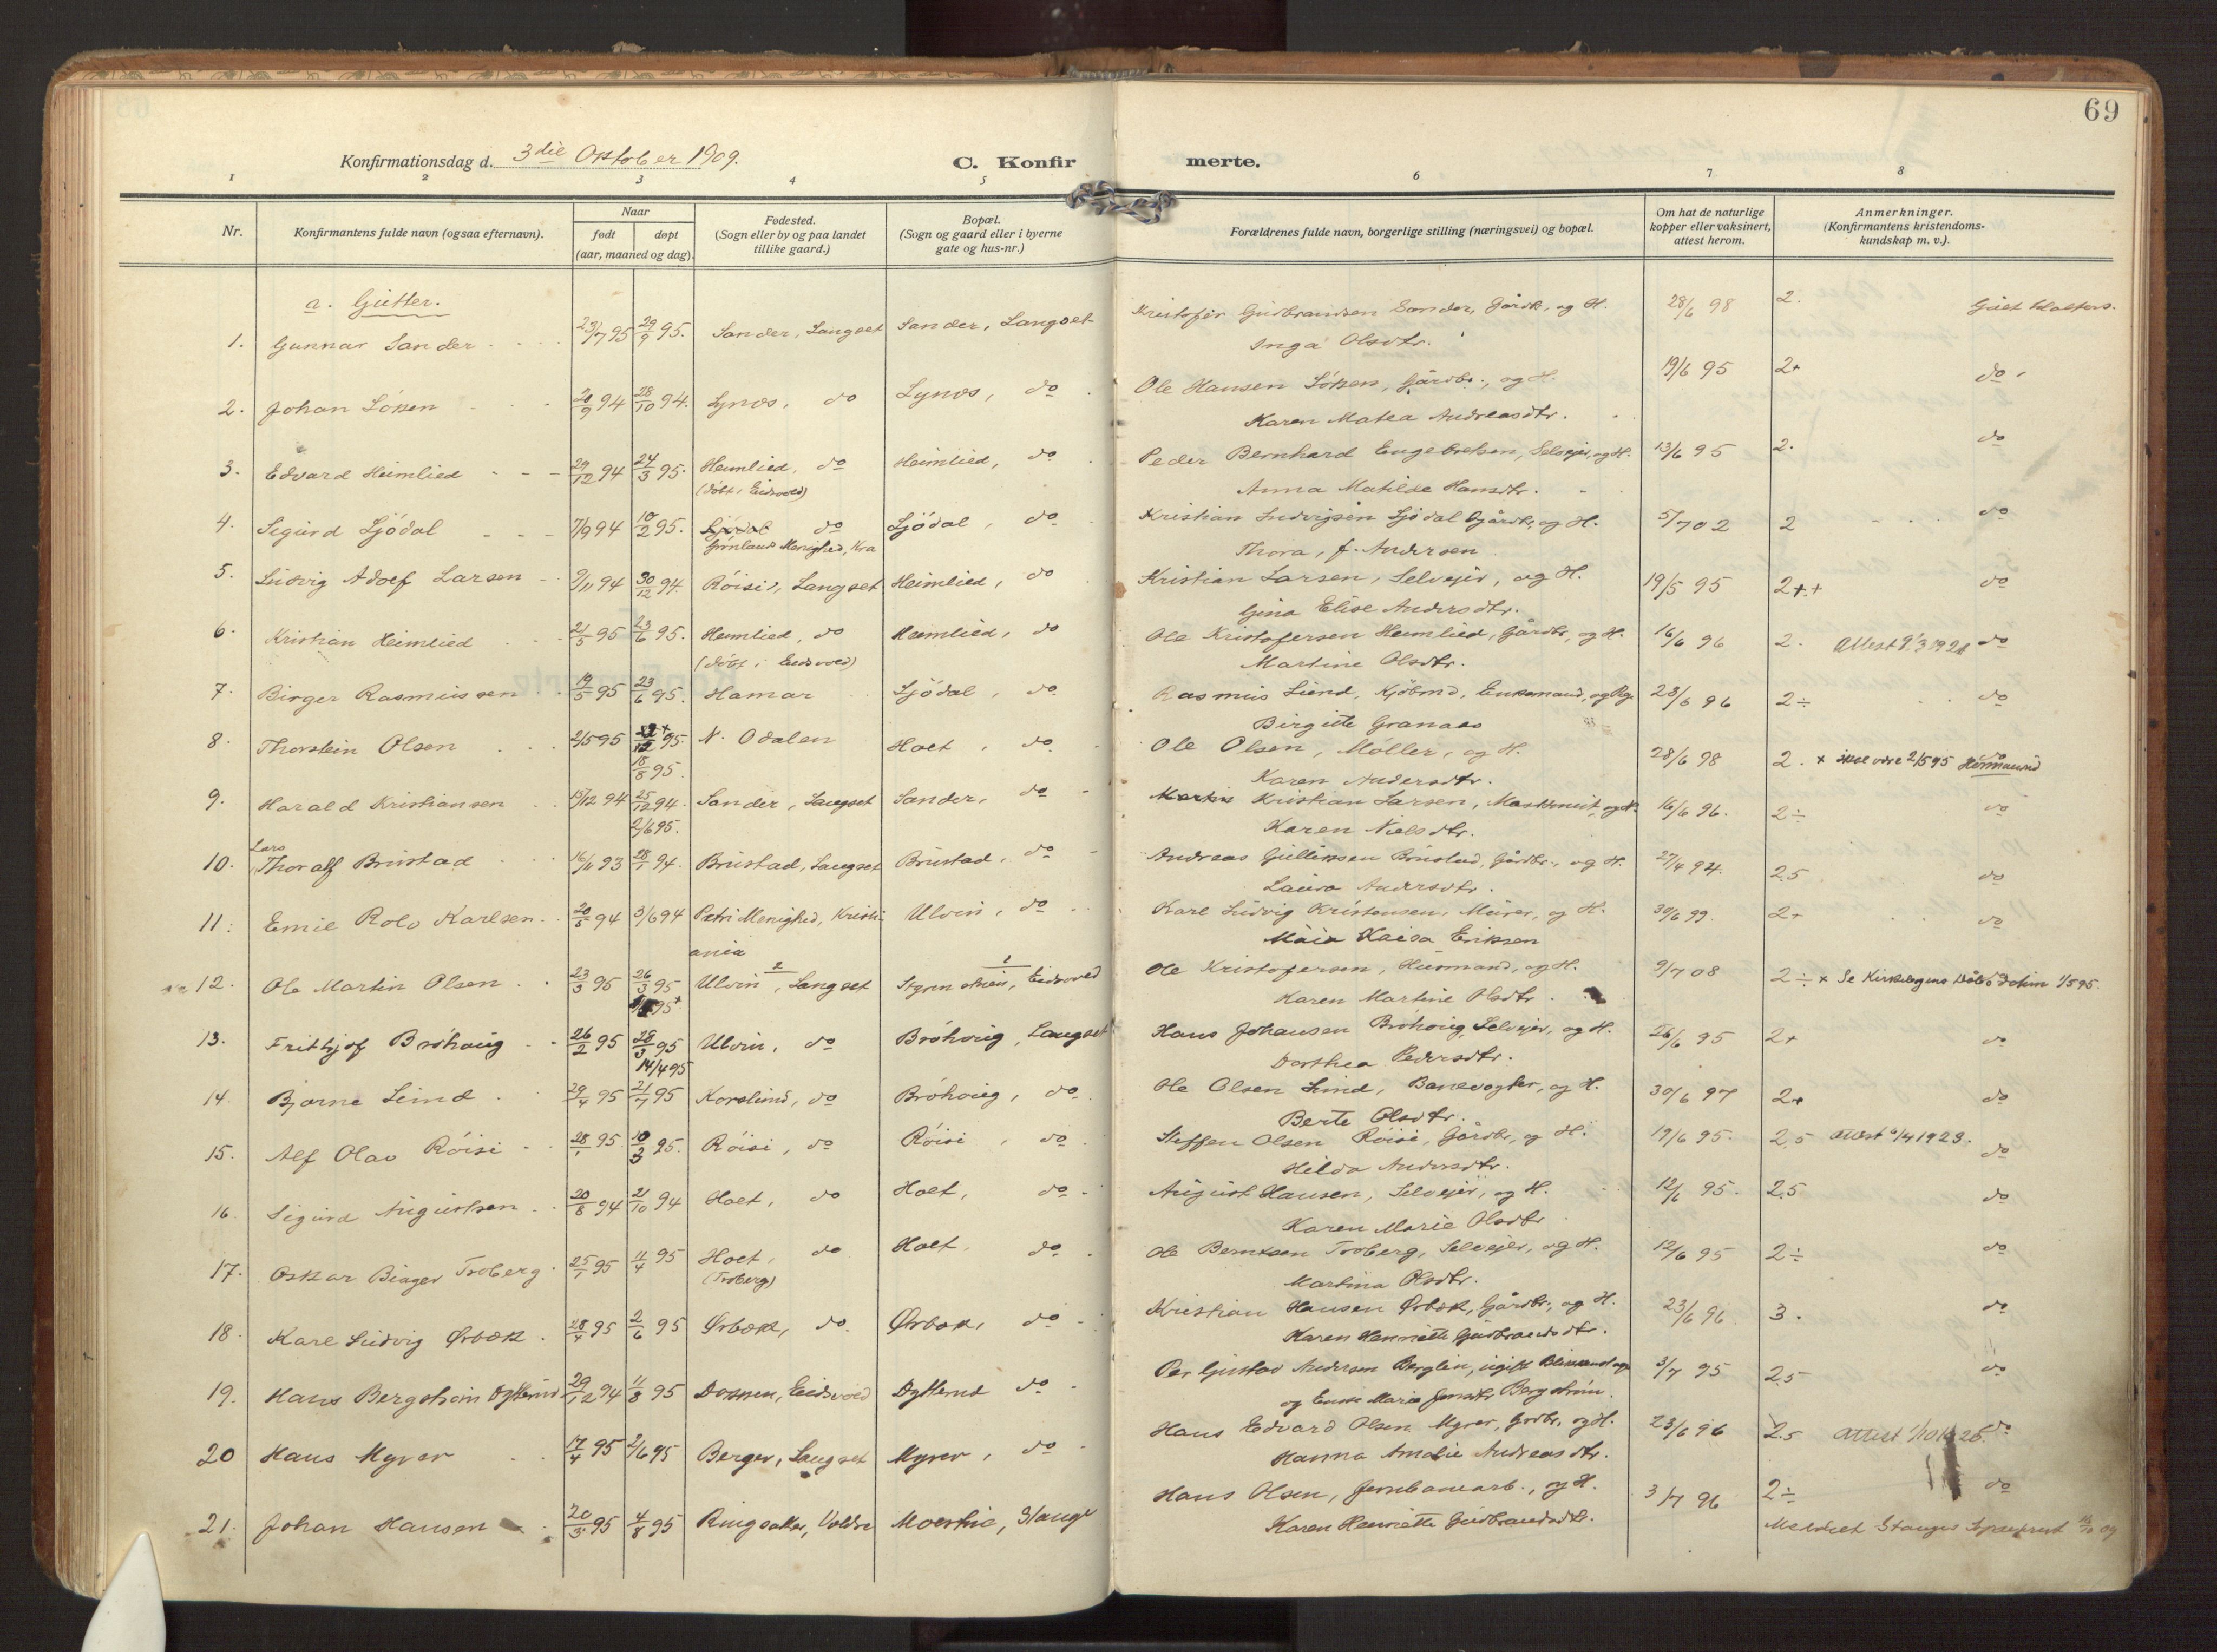 69
Konfirmationsdag d. 3die Oktober 1909. C. Konfirmerte.
1 2 3 4 5 6 7 8
Nr. Konfirmantens fulde navn (ogsaa efternavn). Naar født døpt (aar, maaned og dag). Fødested. (Sogn eller by og paa landet tillike gaard.) Bopæl. (Sogn og gaard eller i byerne gate og hus-nr.) Forældrenes fulde navn, borgerlige stilling (næringsvei) og bopæl. Om hat de naturlige kopper eller vaksinert, attest herom. Anmerkninger. (Konfirmantens kristendomskundskap m. v.).
a. Gutter.
1. Gunnar Sander 23/7 95 29/9 95. Sander, Langset Sander, Langset Kristofer Gudbrandsen Sander, Gårdb, og H. 28/6 98 2.
Inga Olsdtr.
2. Johan Löken 20/9 94 28/10 94. Lynæs, do Lynæs, do Ole Hansen Löken, Gårdbr., og H. 19/6 95 2+ do
Karen Matea Andreasdtr.
3. Edvard Heimlied 29/12 94 24/3 95. Heimlied, do Heimlied, do Peder Bernhard Engebretsen, Selvejer, og H. 13/6 95 2. do
(döbt i Eidsvold) Anna Matilde Hansdtr.
4. Sigurd Ljödal 7/9 94 10/2 95. Ljödal do Ljödal, do Kristian Ludvigsen Ljödal Gårdbr, og H. 5/7 02 2 do
Grönlands Menighed, Kra Thora, f. Andersen
5. Ludvig Adolf Larsen 9/11 94 30/12 94. Röisi, Langset Heimlied, do Kristian Larsen, Selvejer, og H. 19/5 95 2++ do
Gina Elise Andersdtr.
6. Kristian Heimlied 21/5 95 23/6 95. Heimlied, do Heimlied, do Ole Kristofersen Heimlied, Gårdbr, og H. 16/6 96 2. Attest do
(döbt i Eidsvold) Martine Olsdtr.
7. Birger Rasmussen 19/5 95 23/6 95. Hamar Ljödal, do Rasmus Lund, Kjöbmd, Enkemand, og 23/6 96 2÷ do
Birgitte Granaas
8. Thorstein Olsen 2/5 95 95. N. Odalen Holt, do Ole Olsen, Møller, og H. 28/6 98 2. × skal være 2/5 95 do
18/8 95. Karen Andersdtr.
9. Harald Kristiansen 15/12 94 25/12 94. Sander, Langset Sander, do Martin Kristian Larsen, og H. 16/6 96. 2÷ do
2/6 95. Karen Nielsdtr.
10. Lars Thoralf Brustad 16/11 93 28/1 94. Brustad, Langset Brustad, do Andreas Gulliksen Brustad, Gårdbr., og H. 27/4 94. 2,5 do
Laura Andersdtr.
11. Emil Rolv Karlsen 20/5 94 3/6 94 Petri Menighed, Kristiania Ulvin, do Karl Ludvig Kristensen, Murer, og H. 30/6 99. 2+ do
Maia Kaisa Eriksen
12. Ole Martin Olsen 23/3 95 26/3 95 Ulvin, Langset Eidsvold Ole Kristofersen, Husmand, og H. 9/7 08 2÷ × Se Kirkebogens 1/5 95.
Karen Martine Olsdtr.
13. Frithjof Bröhaug 26/2 95 28/3 95 Ulvin, do Bröhaug, Langset Hans Johansen Bröhaug, Selvejer, og H. 26/6 95 2+ do
14/4 95 Dorthea Pedersdtr.
14. Bjarne Lund 29/4 95 21/7 95 Korslund, do Bröhaug, do. Ole Olsen Lund, Banevogter, og H. 30/6 97 2+ do
Berte Olsdtr.
15. Alf Olav Röisi 28/1 95. 10/3 95. Röisi, do Röisi, do Steffen Olsen Röisi, Gårdbr, og H. 19/6 95. 2,5 Attest 1923. do
Hilda Andersdtr.
16. Sigurd Augustsen 20/8 94 21/10 94 Holt, do Holt, do August Hansen, Selvejer, og H. 12/6 95. 2,5 do
Karen Marie Olsdtr
17. Oskar Birger Troberg 25/1 95 4/4 95 Holt, do Holt, do Ole Berntsen Troberg, Selvejer, og H. 12/6 95 2÷ do
(Troberg) Martina Olsdtr.
18. Karl Ludvig Ørbæk 28/4 95 2/6 95 Ørbæk, do. Ørbæk, do Kristian Hansen Ørbæk, Gårdbr., og H. 23/6 96 3. do
Karen Henriette Gudbrandsdtr.
19. Hans Bergstrøm Dytterud 29/12 94 11/8 95 Eidsvold Dytterud do Per Gustav Andersen Berglin, ugift 3/7 95 2,5 do
og Enke Maria Jensdtr Bergstrøm.
20 Hans Myrer 17/4 95 2/6 95 Berger, Langset Myrer, do Hans Edvard Olsen Myrer, Grdbr, og H. 23/6 96 2,5 Attest do
Hanna Amalie Andreasdtr.
21. Johan Hansen 20/3 95 4/8 95 Ringsaker, Stange Hans Olsen, Jernbanearb., og H. 3/7 96 2÷ do
Karen Henriette Gudbrandsdtr. Meddelt Stanges og